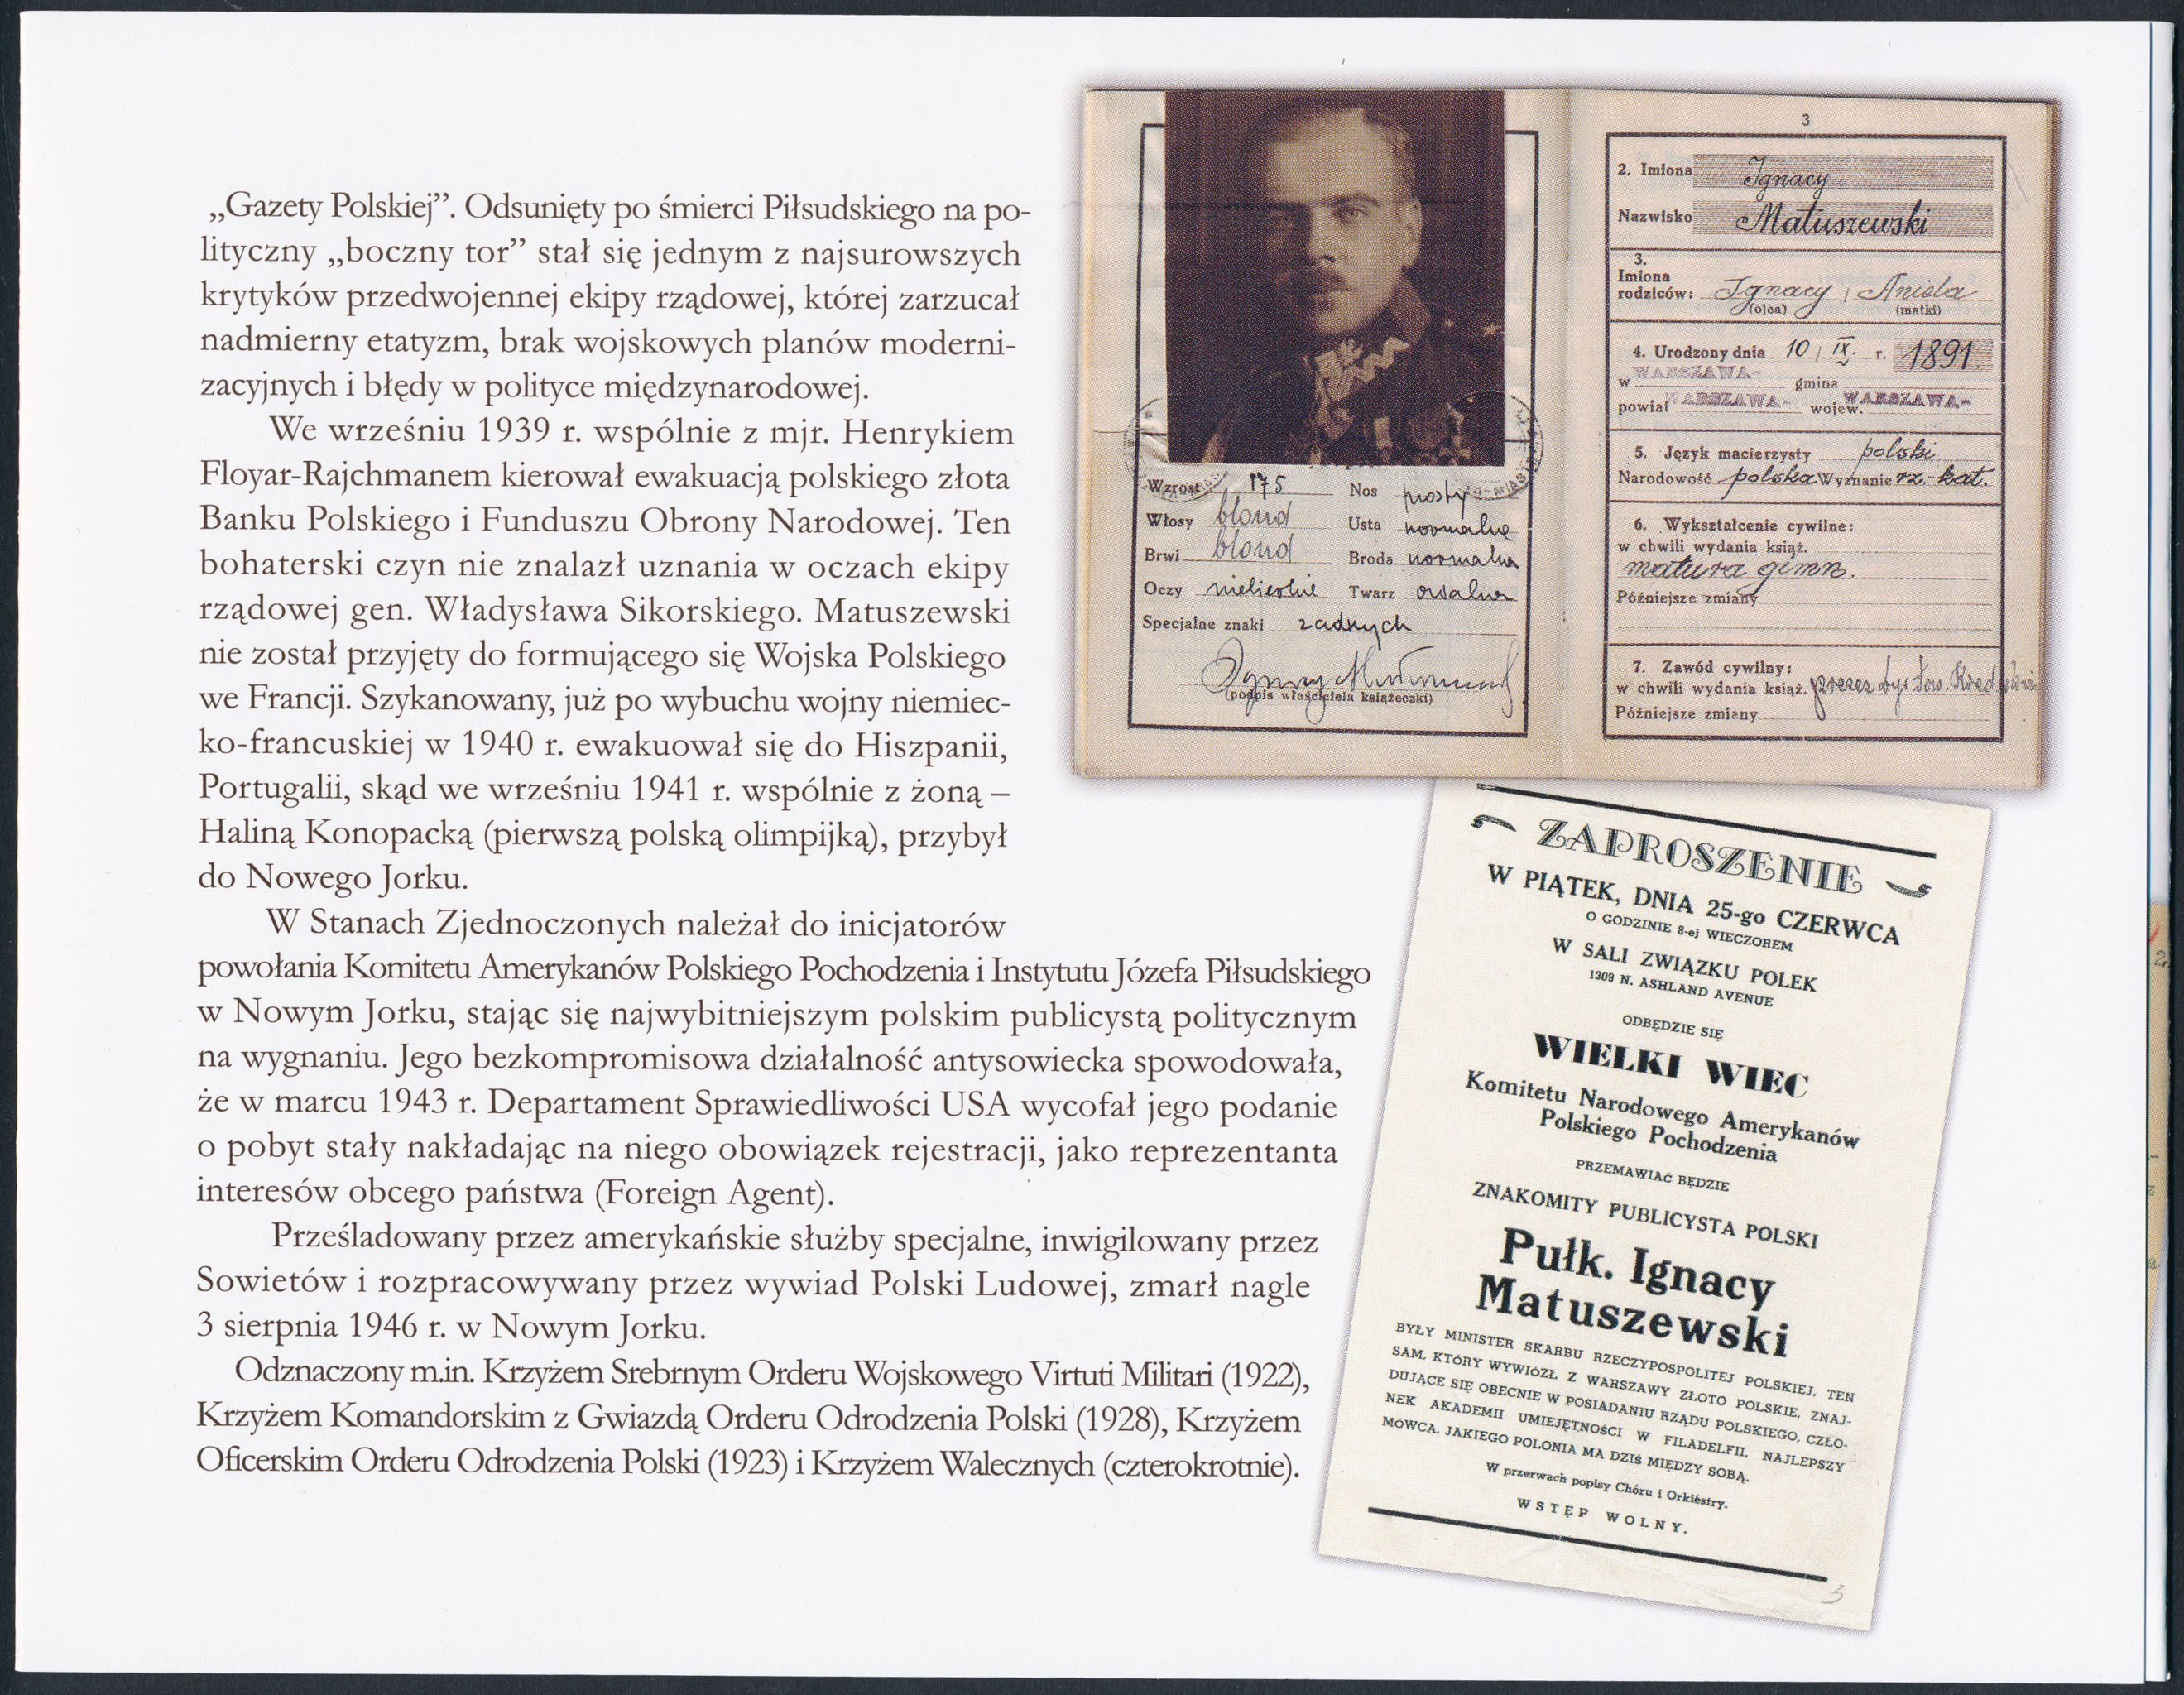 „Gazety Polskiej”. Odsunięty po śmierci Piłsudskiego na po-
lityczny „boczny tor” stał się jednym z najsurowszych
krytyków przedwojennej ekipy rządowej, której zarzucał
nadmierny etatyzm, brak wojskowych planów moderni-
zacyjnych i błędy w polityce międzynarodowej.
We wrześniu 1939 r. wspólnie z mjr. Henrykiem
Floyar-Rajchmanem kierował ewakuacją polskiego złota
Banku Polskiego i Funduszu Obrony Narodowej. Ten
bohaterski czyn nie znalazł uznania w oczach ekipy
rządowej gen. Władysława Sikorskiego. Matuszewski
nie został przyjęty do formującego się Wojska Polskiego
we Francji. Szykanowany, już po wybuchu wojny niemiec-
ko-francuskiej w 1940 r. ewakuował się do Hiszpanii,
Portugalii, skąd we wrześniu 1941 r. wspólnie z żoną –
Haliną Konopacką (pierwszą polską olimpijką), przybył
do Nowego Jorku.
W Stanach Zjednoczonych należał do inicjatorów
powołania Komitetu Amerykanów Polskiego Pochodzenia i Instytutu Józefa Piłsudskiego
w Nowym Jorku, stając się najwybitniejszym polskim publicystą politycznym
na wygnaniu. Jego bezkompromisowa działalność antysowiecka spowodowała,
że w marcu 1943 r. Departament Sprawiedliwości USA wycofał jego podanie
o pobyt stały nakładając na niego obowiązek rejestracji, jako reprezentanta
interesów obcego państwa (Foreign Agent).
Prześladowany przez amerykańskie służby specjalne, inwigilowany przez
Sowietów i rozpracowywany przez wywiad Polski Ludowej, zmarł nagle
3 sierpnia 1946 r. w Nowym Jorku.
Odznaczony m.in. Krzyżem Srebrnym Orderu Wojskowego Virtuti Militari (1922),
Krzyżem Komandorskim z Gwiazdą Orderu Odrodzenia Polski (1928), Krzyżem
Oficerskim Orderu Odrodzenia Polski (1923) i Krzyżem Walecznych (czterokrotnie).
Wzrost 175 Nos prosty
Włosy blond Usta normalne
Brwi blond Broda normalna
Oczy niebieskie Twarz owalna
Specjalne znaki żadnych
(podpis właściciela książeczki)
3
2. Imiona Ignacy
Nazwisko Matuszewski
3.
Imiona
rodziców: Ignacy, Aniela
(ojca) (matki)
4. Urodzony dnia 10 IX. r. 1891.
w WARSZAWA- gmina
powiat WARSZAWA- wojew. WARSZAWA-
5. Język macierzysty polski
Narodowość polska Wyznanie rz.-kat.
6. Wykształcenie cywilne:
w chwili wydania książ.
matura gimn.
Późniejsze zmiany
7. Zawód cywilny:
w chwili wydania książ. prezes Tow. Kred.
Późniejsze zmiany
ZAPROSZENIE
W PIĄTEK, DNIA 25-go CZERWCA
O GODZINIE 8-ej WIECZOREM
W SALI ZWIĄZKU POLEK
1309 N. ASHLAND AVENUE
ODBĘDZIE SIĘ
WIELKI WIEC
Komitetu Narodowego Amerykanów
Polskiego Pochodzenia
PRZEMAWIAĆ BĘDZIE
ZNAKOMITY PUBLICYSTA POLSKI
Pułk. Ignacy
Matuszewski
BYŁY MINISTER SKARBU RZECZYPOSPOLITEJ POLSKIEJ, TEN
SAM, KTÓRY WYWIÓZŁ Z WARSZAWY ZŁOTO POLSKIE, ZNAJ-
DUJĄCE SIĘ OBECNIE W POSIADANIU RZĄDU POLSKIEGO, CZŁO-
NEK AKADEMII UMIEJĘTNOŚCI W FILADELFII, NAJLEPSZY
MÓWCA, JAKIEGO POLONIA MA DZIŚ MIĘDZY SOBĄ.
W przerwach popisy Chóru i Orkiestry.
WSTĘP WOLNY.
3